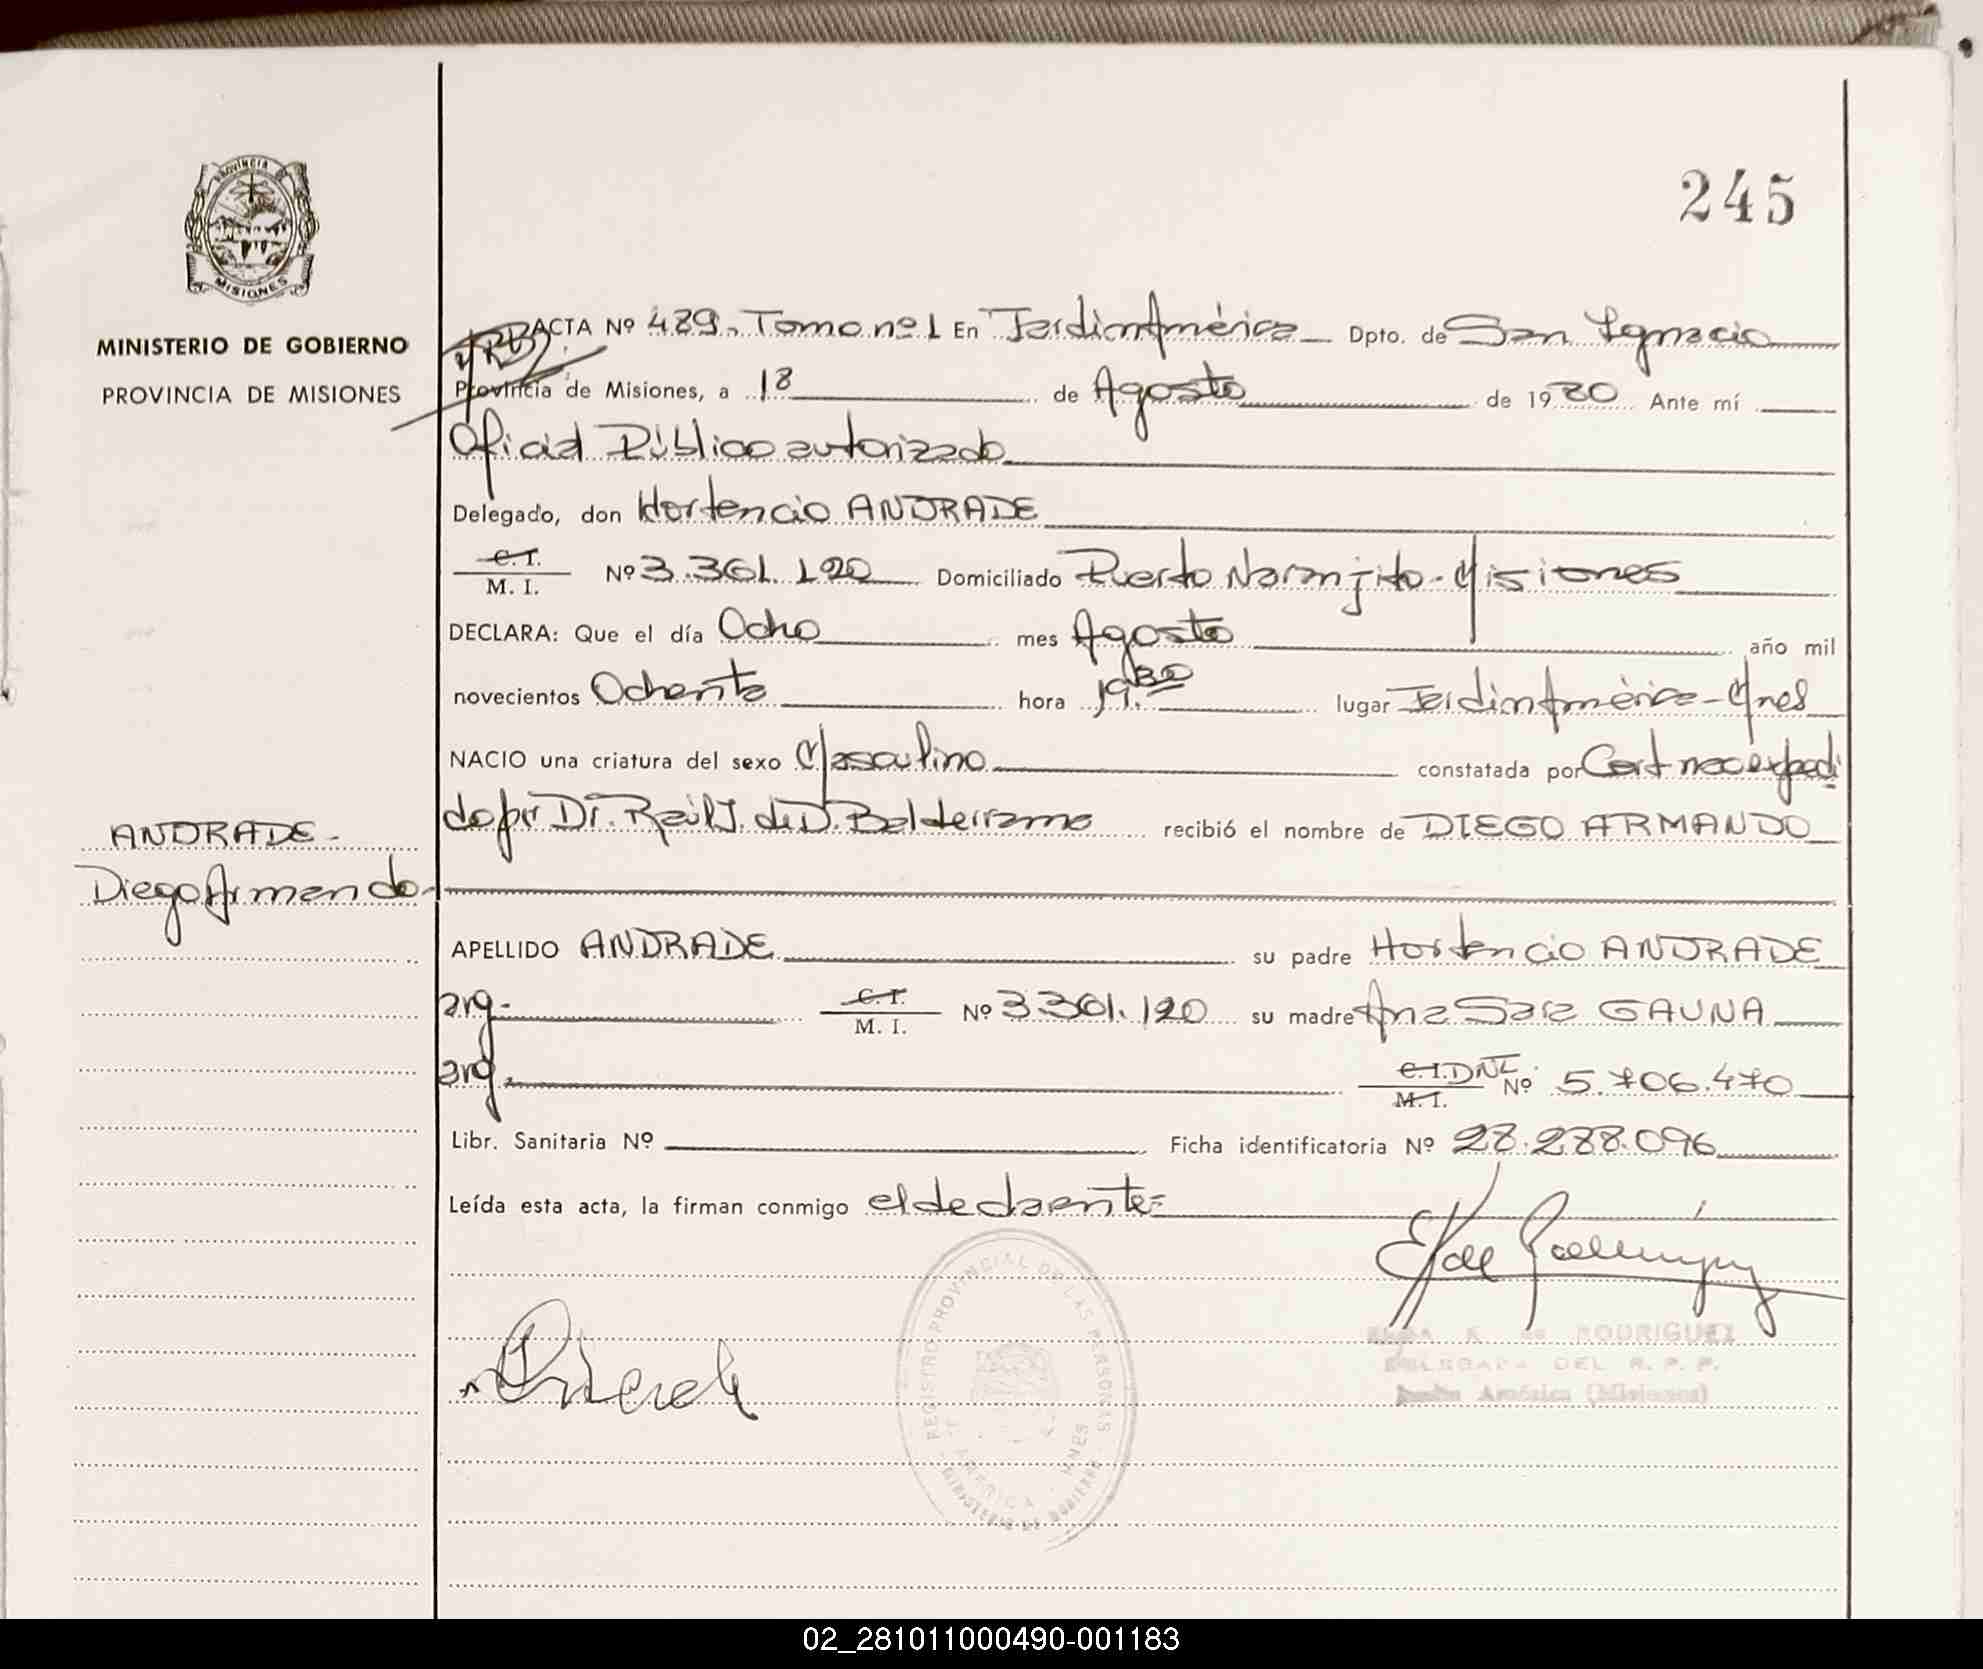 245
PROVINCIA
MISIONES
MINISTERIO DE GOBIERNO
PROVINCIA DE MISIONES
ACTA Nº 489., Tomo nº 1 En Jardín América Dpto. de San Ignacio
Provincia de Misiones, a 18 de Agosto de 1980 Ante mí
Oficial Público autorizado
Delegado, don Hortencio ANDRADE
C. I.
M. I. Nº 3.361.120 Domiciliado Puerto Naranjito - Misiones
DECLARA: Que el día Ocho mes Agosto año mil
novecientos Ochenta hora 19.30 lugar Jardín América - Mnes
NACIO una criatura del sexo Masculino constatada por Cert nac expedi
do por Dr. Raúl J. de D. Balderramo recibió el nombre de DIEGO ARMANDO
ANDRADE -
Diego Armando -
APELLIDO ANDRADE su padre Hortencio ANDRADE
arg. C. I.
M. I. Nº 3361.120 su madre Ana Sara GAUNA
arg. C. I. DNI
M. I. Nº 5.706.470
Libr. Sanitaria Nº Ficha identificatoria Nº 28.288.096
Leída esta acta, la firman conmigo el declarante =
REGISTRO PROVINCIAL DE LAS PERSONAS
MINISTERIO DE GOBIERNO
AMERICA - MNES
K. de RODRIGUEZ
DELEGADA DEL R. P. P.
Jardín América (Misiones)
02_281011000490-001183